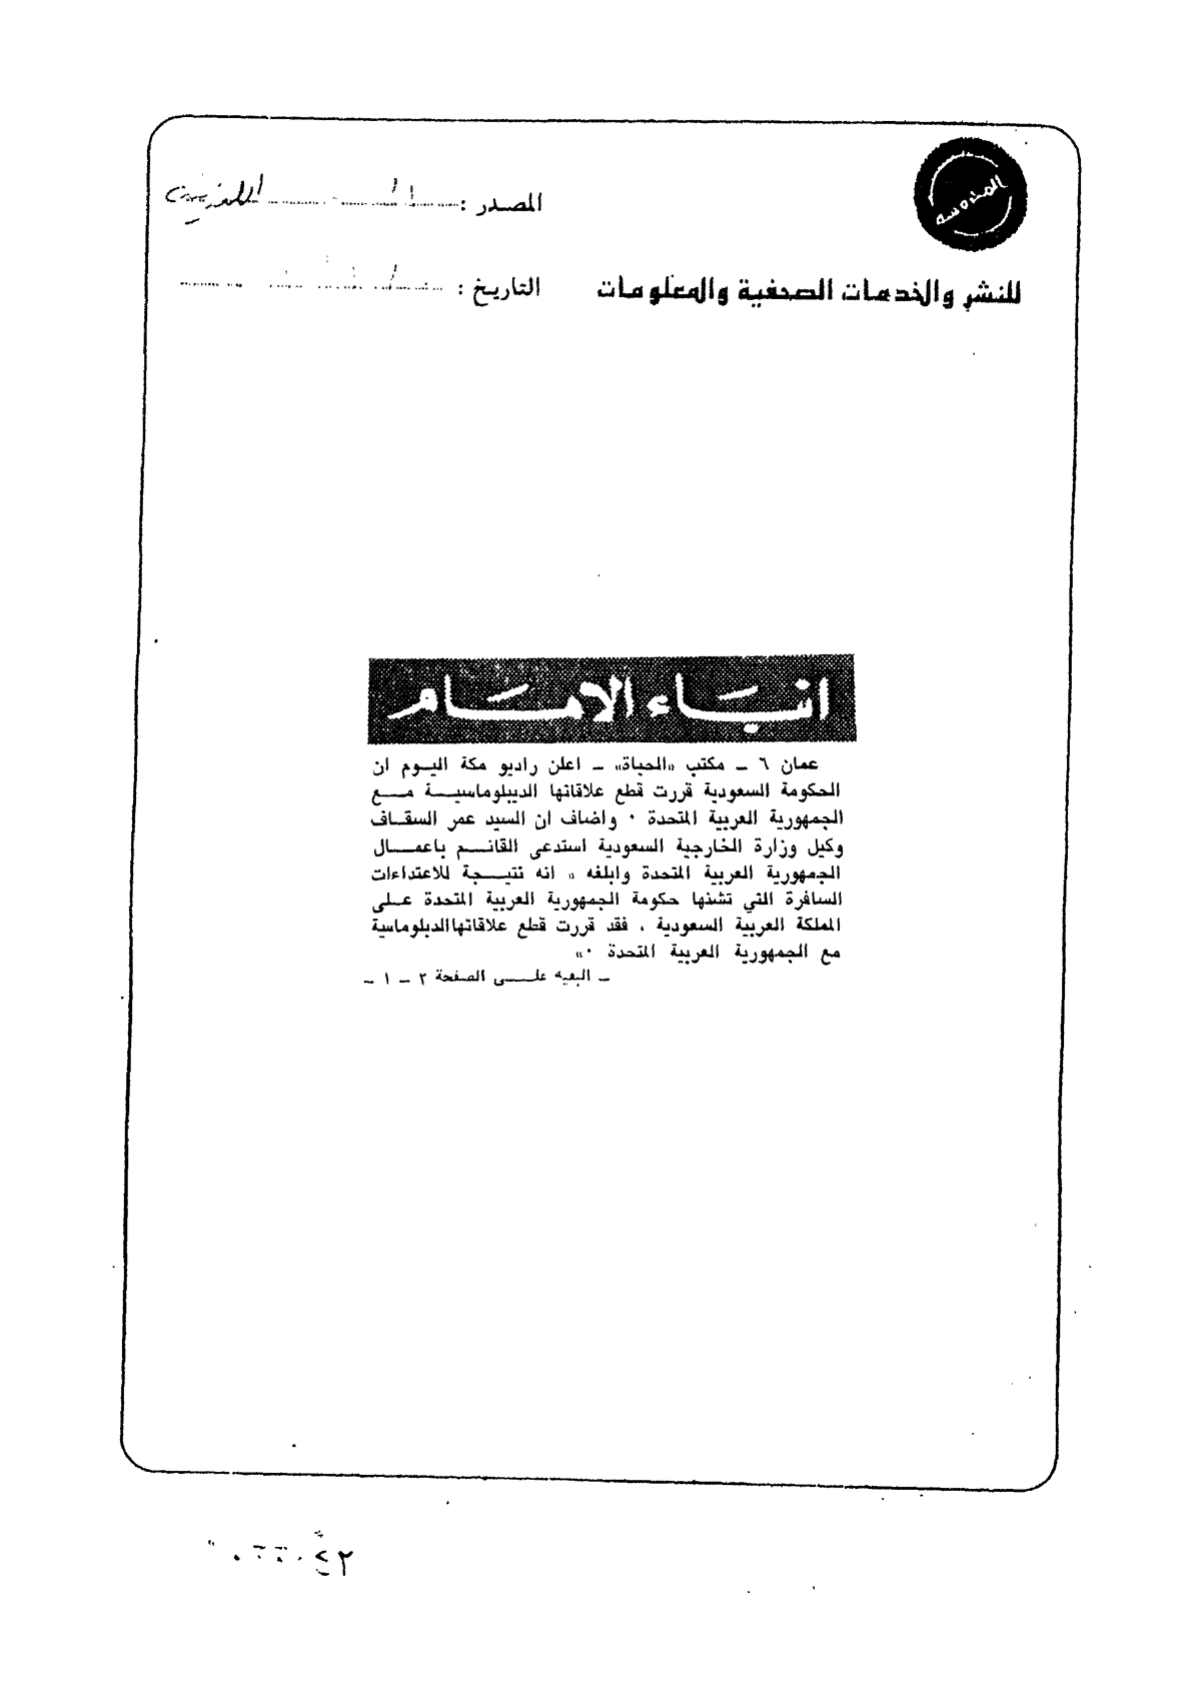 المصدر :
للنشر والخدمات الصحفية والمعلومات
التاريخ :
انباء الامام
عمان ٦ ـ مكتب «الحياة» ـ اعلن راديو مكة اليوم ان
الحكومة السعودية قررت قطع علاقاتها الديبلوماسية مع
الجمهورية العربية المتحدة ٠ واضاف ان السيد عمر السقاف
وكيل وزارة الخارجية السعودية استدعى القائم باعمال
الجمهورية العربية المتحدة وابلغه « انه نتيجة للاعتداءات
السافرة التي تشنها حكومة الجمهورية العربية المتحدة على
المملكة العربية السعودية ، فقد قررت قطع علاقاتها الدبلوماسية
مع الجمهورية العربية المتحدة ٠»
ـ البقيه على الصفحة ٢ ـ ١ ـ